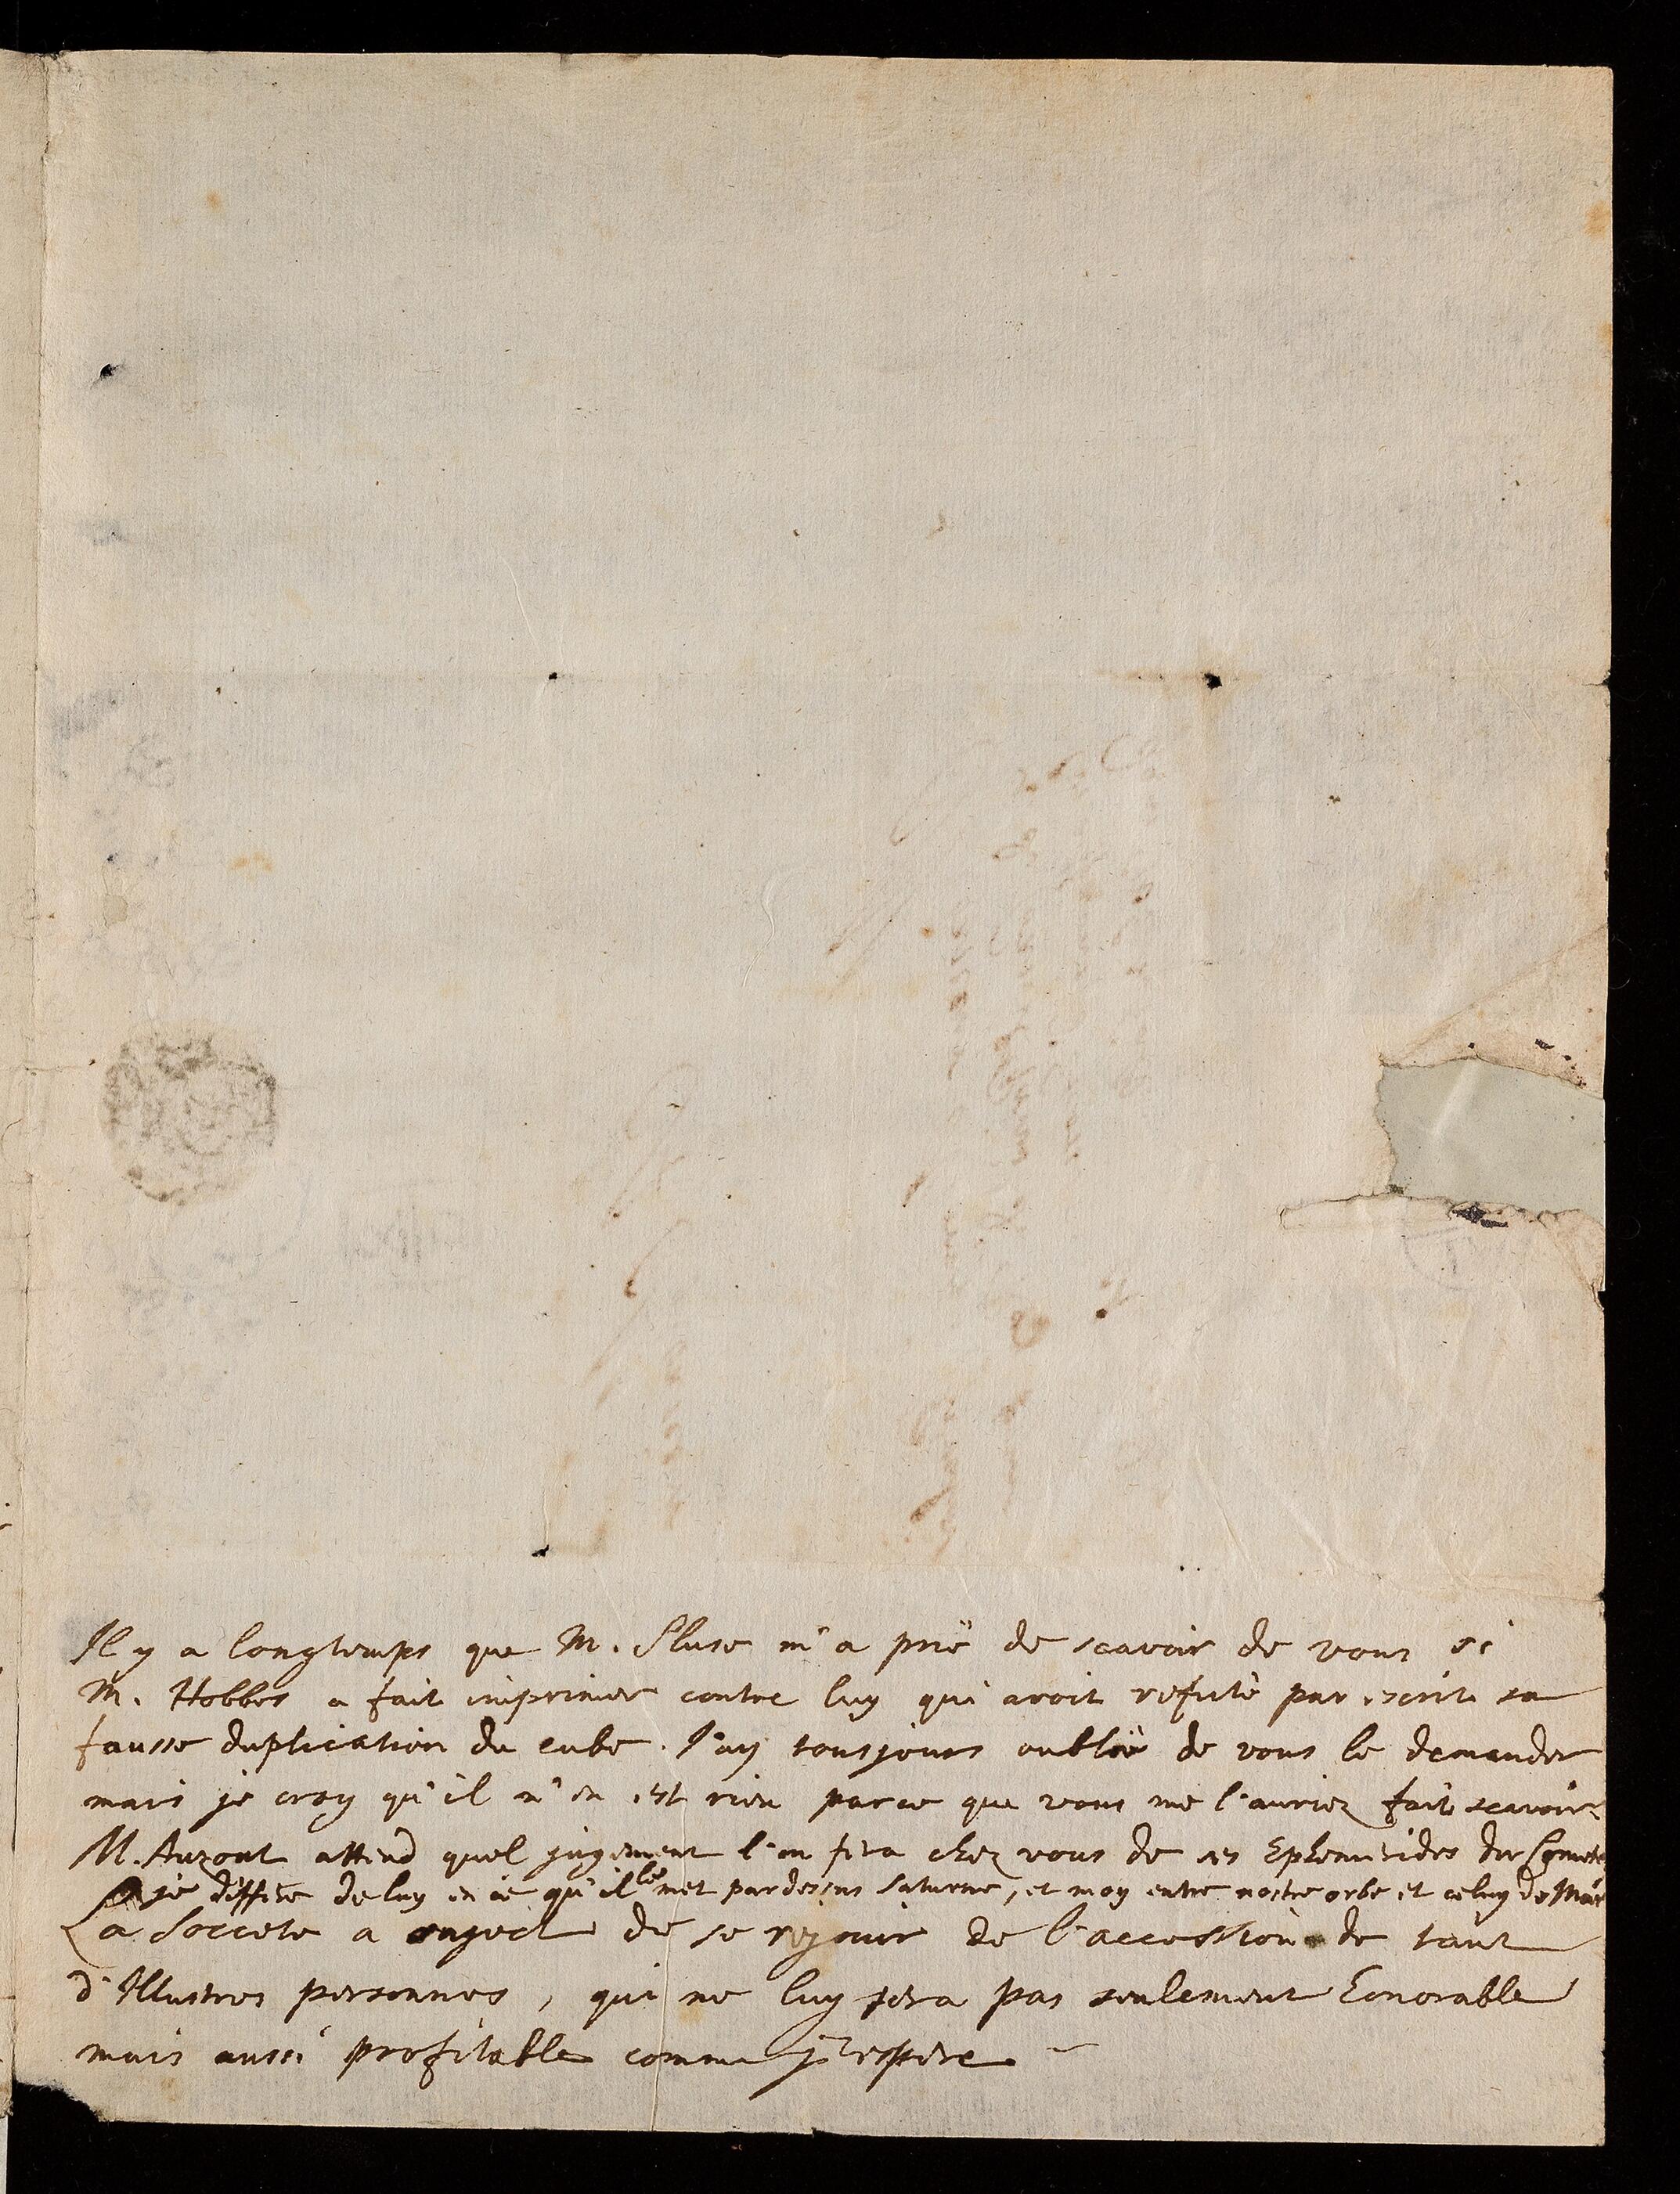 Il y a longtemps que M. Sluse m'a priè de scavoir de vous si
M. Hobbes a fait imprimer contre luy qui avoit refutè par escrit sa
fausse duplication du cube. J'ay tousjours oubliè de vous le demander
mais je croy qu'il n'en est rien parce que vous me l'auriez fait scavoir.
M. Auzout attend quel jugement l'on fera chez vous de ses Ephemerides des Cometes
je differe de luy en ce qu'il le met par dessus Saturne, et moy entre nostre orbe et celuy de Mars
La Societe a suject de se rejouir de l'accession de tant
d'Illustres personnes, qui ne luy sera pas seulement honorable
mais aussi profitable comme j'espere.